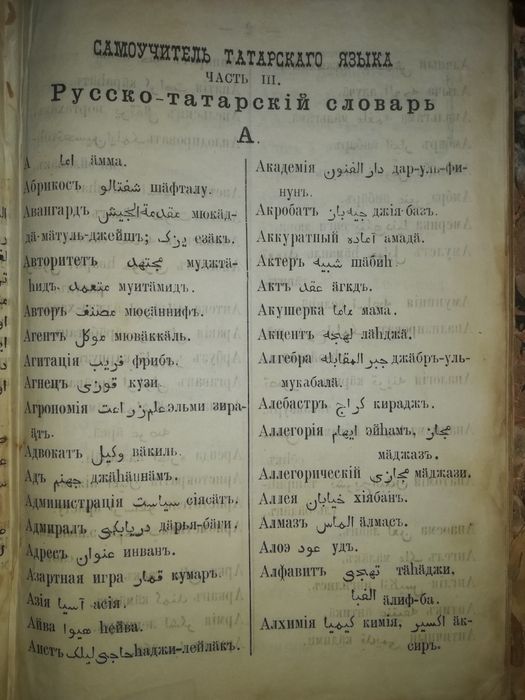 САМОУЧИТЕЛЬ ТАТАРСКАГО ЯЗЫКА
ЧАСТЬ III.
Русско-татарскій словарь
А.
А اما ӓмма.
Абрикосъ شفتالو шӓфталу.
Авангардъ مقدمة الجيش мюкӓд-
дӓ-мӓтуль-джейшъ; يزك езӓкъ.
Авторитетъ مجتهد муджтӓ-
һидъ معتمد муитӓмидъ.
Авторъ مصنف мюсӓннифъ.
Агентъ موكل мюваккӓль.
Агитація فريب фрибъ.
Агнецъ قوزى кузи.
Агрономія علم زراعت эльми зира-
ӓтъ.
Адвокатъ وكيل вӓкиль.
Адъ جهنم джӓһӓннӓмъ.
Администрація سياست сіясӓтъ.
Адмиралъ دريابكى дӓрья-бӓги.
Адресъ عنوان инванъ.
Азартная игра قمار кумаръ.
Азія آسيا асія.
Айва هيوا һейва.
Аистъ حاجى ليلك һаджи-лейлӓкъ.
Академія دار الفنون дар-уль-фи-
нунъ.
Акробатъ جيه باز джія-базъ.
Аккуратный آماده амадӓ.
Актеръ شبيه шӓбиһ.
Актъ عقد ӓгкдъ.
Акушерка ماما мама.
Акцентъ لهجه лӓһджӓ.
Алгебра جبر المقابله джӓбръ-уль-
мукабалӓ.
Алебастръ كراج кираджъ.
Аллегорія ايهام эйһамъ, مجاز
мӓджазъ.
Аллегорическій مجازى мӓджази.
Аллея خيابان хіябанъ.
Алмазъ الماس ӓлмасъ.
Алоэ عود удъ.
Алфавитъ تهجى тӓһӓджи.
الفبا ӓлиф-ба.
Алхимія كيميا кимія, اكسير ӓк-
сиръ.